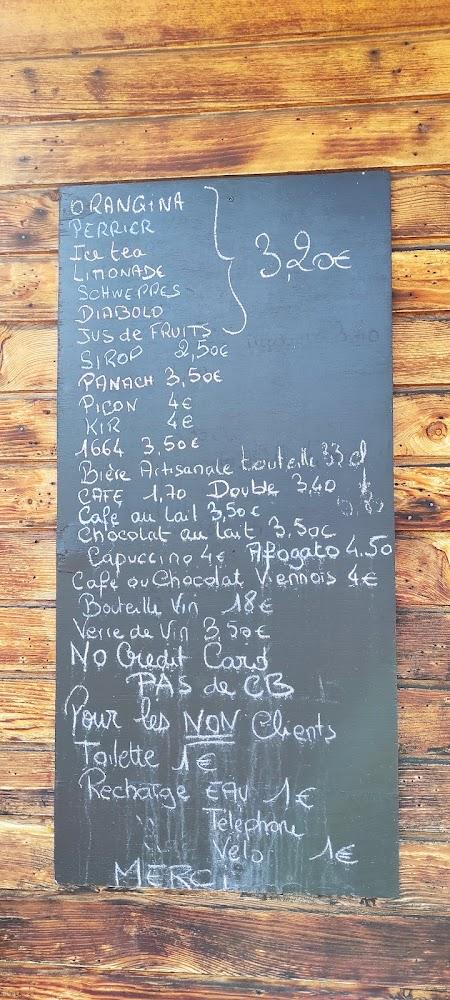 ORANGINA
PERRIER
Ice tea
LIMONADE
3,20€
SCHWEPPES
DIABOLO
JUS de FRUITS
SIROP 2,50€
PANACH 3,50€
PICON 4€
KIR 4€
1664 3,50€
Bière Artisanale bouteille 33 cl
CAFE 1,70 Double 3,40
Café au lait 3,50€
Chocolat au lait 3,50€
Capuccino 4€ Afogato 4.50
Café ou Chocolat Viennois 4€
Bouteille Vin 18€
Verre de Vin 3,50€
NO Credit Card
PAS de CB
Pour les NON Clients
Toilette 1€
Recharge EAU 1€
" Telephone
" Vélo 1€
MERCi